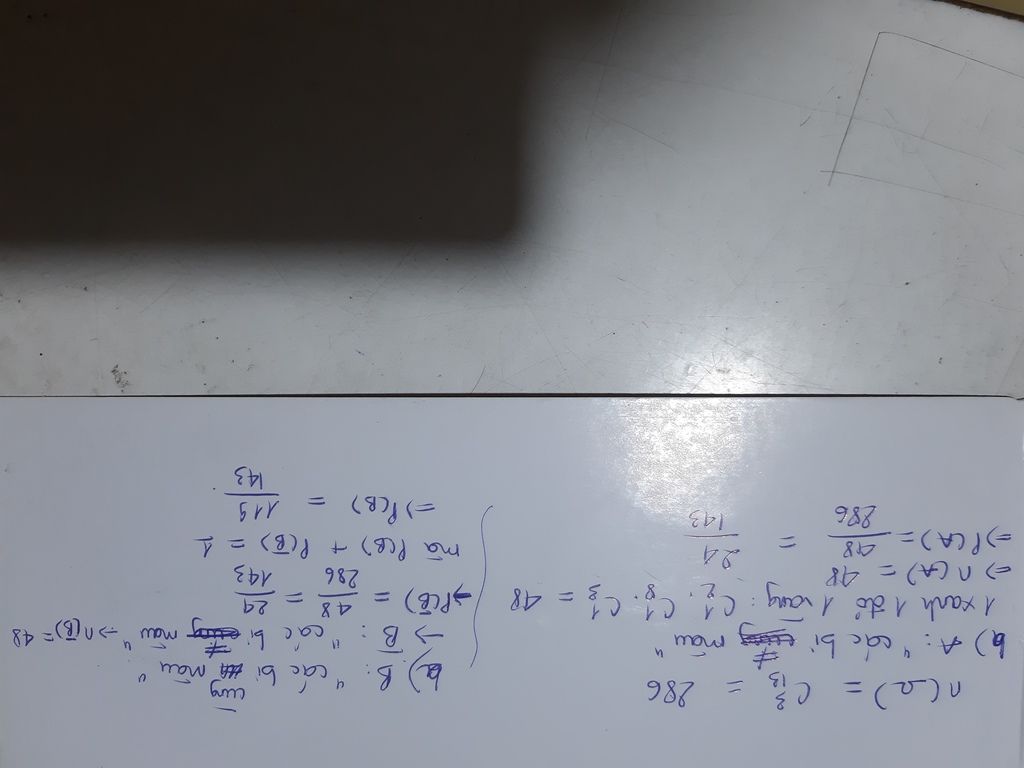 n(Ω) = C³₁₃ = 286
b) A: " các bi ≠ màu "
1 xanh 1 đỏ 1 vàng: C¹₂ . C¹₈ . C¹₃ = 48
=> n(A) = 48
=> P(A) = 48/286 = 24/143
a) B: " các bi cùng màu "
→ B̅: " các bi ≠ màu " → n(B̅) = 48
→ P(B̅) = 48/286 = 24/143
mà P(B) + P(B̅) = 1
=> P(B) = 119/143